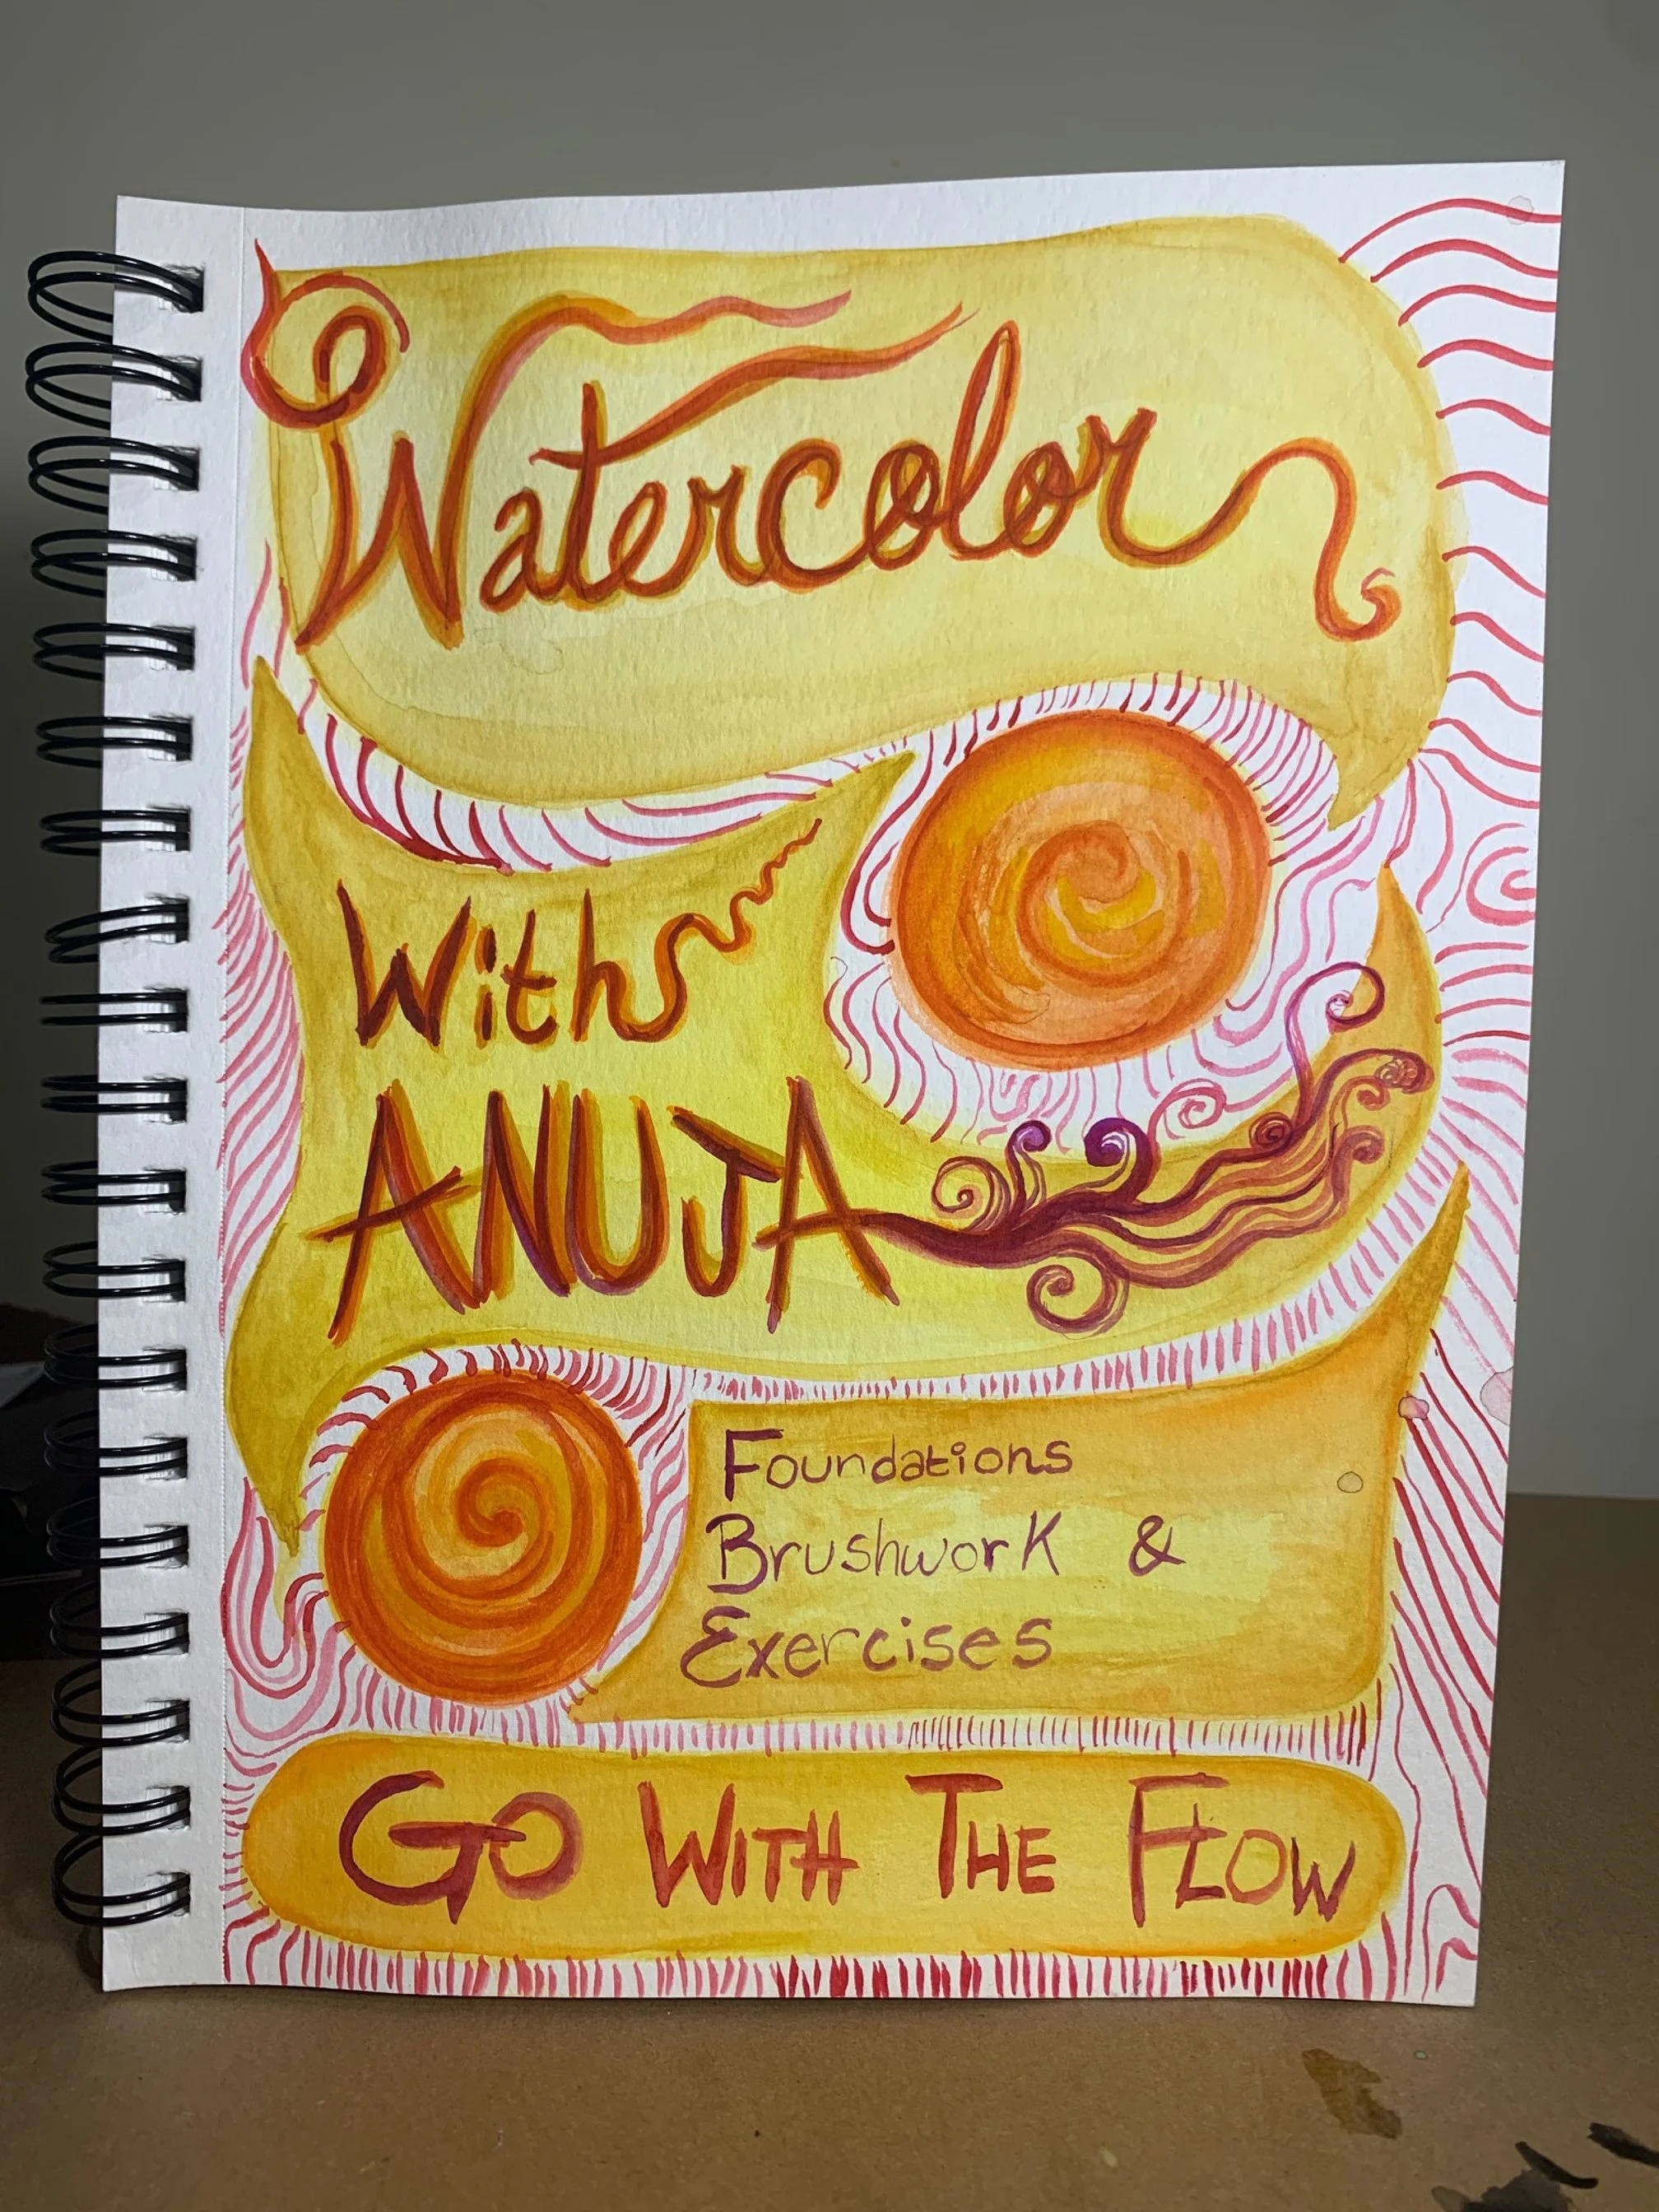 Watercolor
With
ANUJA
Foundations
Brushwork &
Exercises
GO WITH THE FLOW